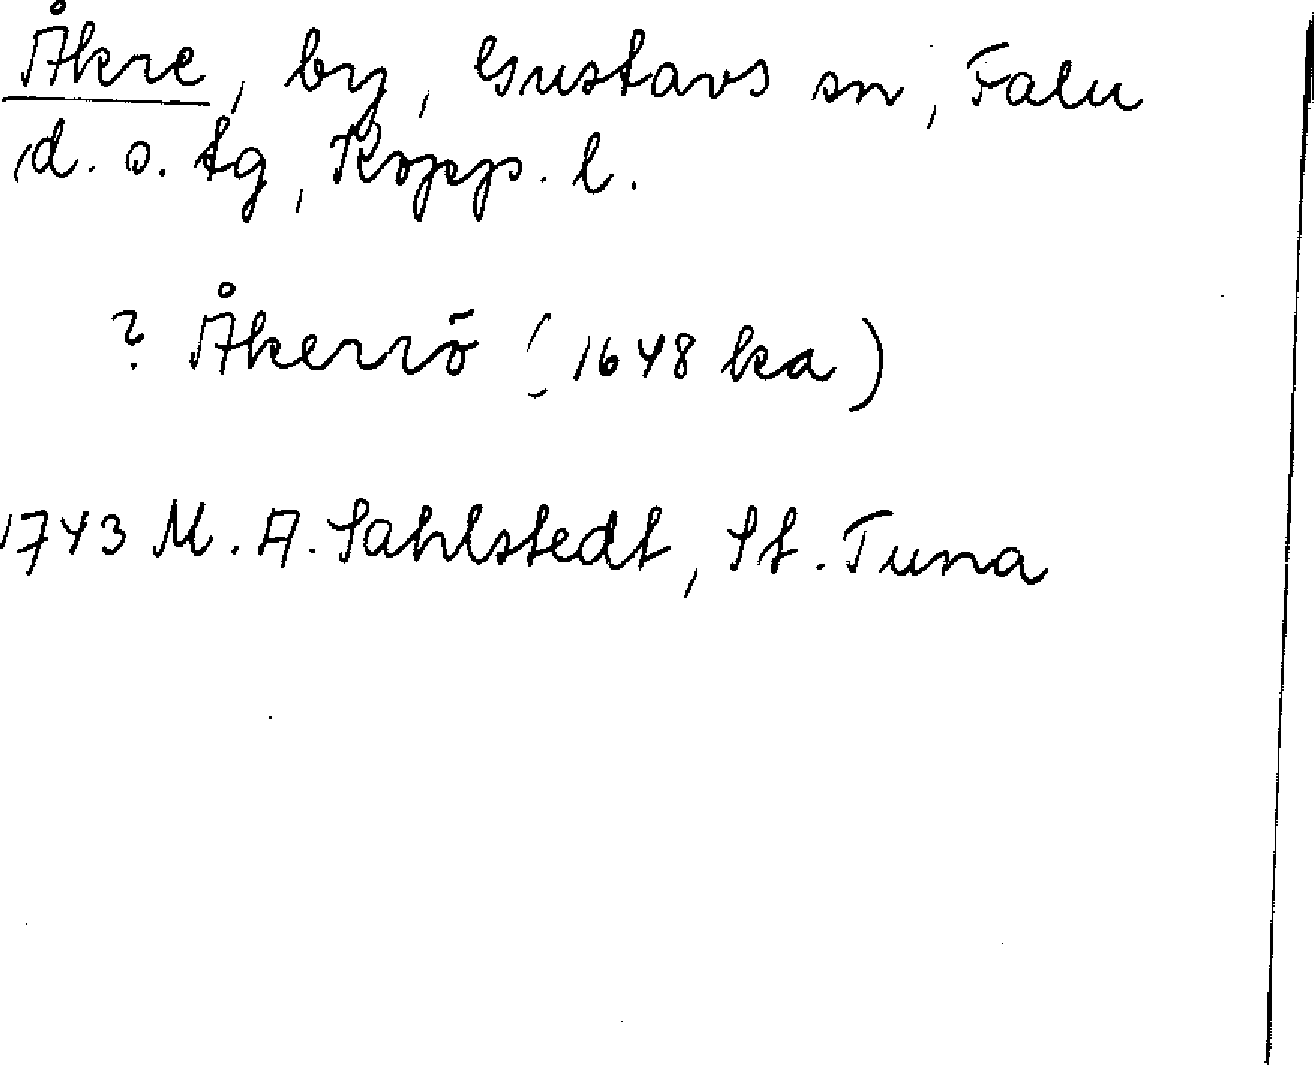 Åkre, by, Gustavs sn, Falu
d. s. tg, Kopp. l.
? Åkerrö (1648 ka)
1743 M. A. Sahlstedt, St. Tuna